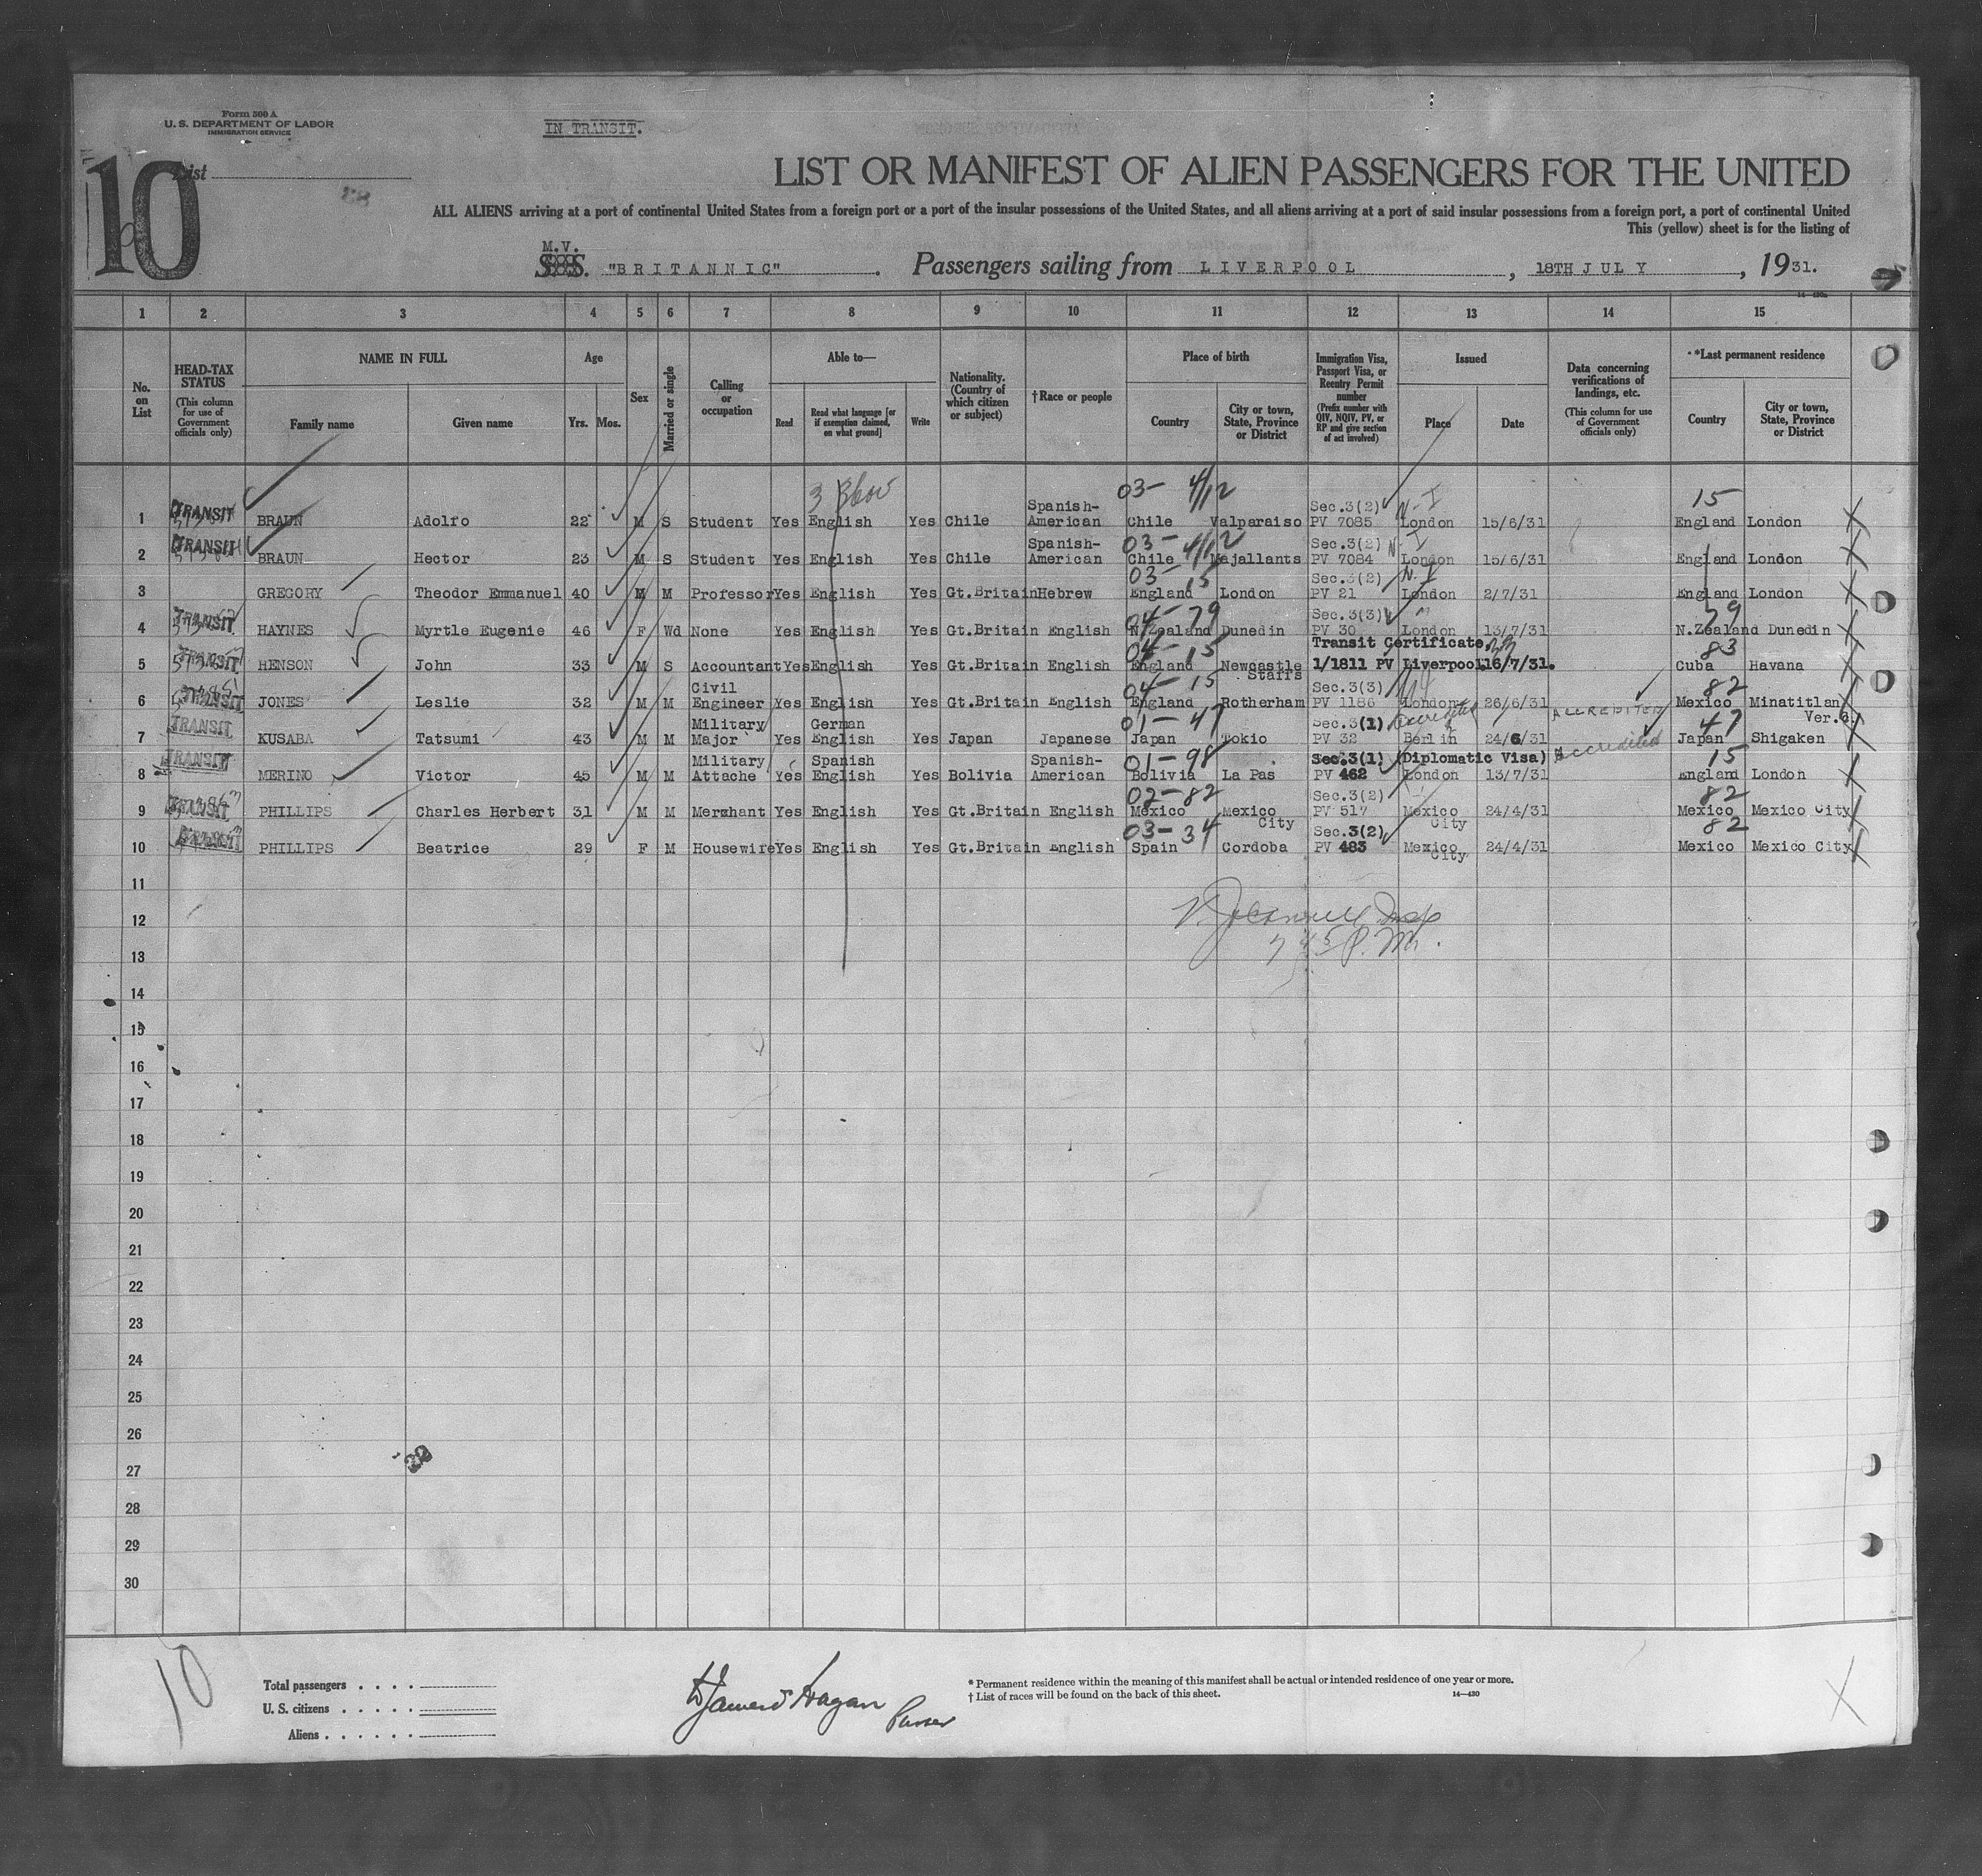 Form 500 A
U. S. DEPARTMENT OF LABOR
IMMIGRATION SERVICE
IN TRANSIT.
10
List
LIST OR MANIFEST OF ALIEN PASSENGERS FOR THE UNITED
ALL ALIENS arriving at a port of continental United States from a foreign port or a port of the insular possessions of the United States, and all aliens arriving at a port of said insular possessions from a foreign port, a port of continental United
This (yellow) sheet is for the listing of
M.V.
S.S. "BRITANNIC". Passengers sailing from LIVERPOOL, 18TH JULY, 1931.
1 2 3 4 5 6 7 8 9 10 11 12 13 14 15
No. on List
HEAD-TAX STATUS (This column for use of Government officials only)
NAME IN FULL Family name Given name
Age Yrs. Mos.
Sex
Married or single
Calling or occupation
Able to— Read Read what language [or if exemption claimed, on what ground] Write
Nationality. (Country of which citizen or subject)
†Race or people
Place of birth Country City or town, State, Province or District
Immigration Visa, Passport Visa, or Reentry Permit number (Prefix number with QIV, NQIV, PV, or RP and give section of act involved)
Issued Place Date
Data concerning verifications of landings, etc. (This column for use of Government officials only)
*Last permanent residence Country City or town, State, Province or District
03- 4/12 N-I 15
1 TRANSIT BRAUN Adolfo 22 M S Student Yes English Yes Chile Spanish-American Chile Valparaiso Sec.3(2) PV 7085 London 15/6/31 England London
03- 4/12 N-I
2 TRANSIT BRAUN Hector 23 M S Student Yes English Yes Chile Spanish-American Chile Majallants Sec.3(2) PV 7084 London 15/6/31 England London
03- 15 N-I
3 GREGORY Theodor Emmanuel 40 M M Professor Yes English Yes Gt.Britain Hebrew England London Sec.3(2) PV 21 London 2/7/31 England London
04- 79 79
4 TRANSIT HAYNES Myrtle Eugenie 46 F Wd None Yes English Yes Gt.Britain English N.Zealand Dunedin Sec.3(3) PV 30 London 13/7/31 N.Zealand Dunedin
04- 15 83
5 TRANSIT HENSON John 33 M S Accountant Yes English Yes Gt.Britain English England Newcastle Staffs Transit Certificate 1/1811 PV Liverpool 16/7/31. Cuba Havana
04- 15 82
6 TRANSIT JONES Leslie 32 M M Civil Engineer Yes English Yes Gt.Britain English England Rotherham Sec.3(3) PV 1186 London 26/6/31 Mexico Minatitlan Ver.
01-47 ACCREDITED 47
7 TRANSIT KUSABA Tatsumi 43 M M Military Major Yes German English Yes Japan Japanese Japan Tokio Sec.3(1) PV 32 Berlin 24/6/31 Japan Shigaken
01-98 Accredited 15
8 TRANSIT MERINO Victor 45 M M Military Attache Yes Spanish English Yes Bolivia Spanish-American Bolivia La Pas Sec.3(1) (Diplomatic Visa) PV 462 London 13/7/31 England London
02-82 82
9 TRANSIT PHILLIPS Charles Herbert 31 M M Merchant Yes English Yes Gt.Britain English Mexico Mexico City Sec.3(2) PV 517 Mexico City 24/4/31 Mexico Mexico City
03-34 82
10 TRANSIT PHILLIPS Beatrice 29 F M Housewife Yes English Yes Gt.Britain English Spain Cordoba Sec.3(2) PV 483 Mexico City 24/4/31 Mexico Mexico City
11
12
7 45 P.M.
13
14
15
16
17
18
19
20
21
22
23
24
25
26
27
28
29
30
10
Total passengers
U. S. citizens
Aliens
Purser
* Permanent residence within the meaning of this manifest shall be actual or intended residence of one year or more.
† List of races will be found on the back of this sheet.
14—430